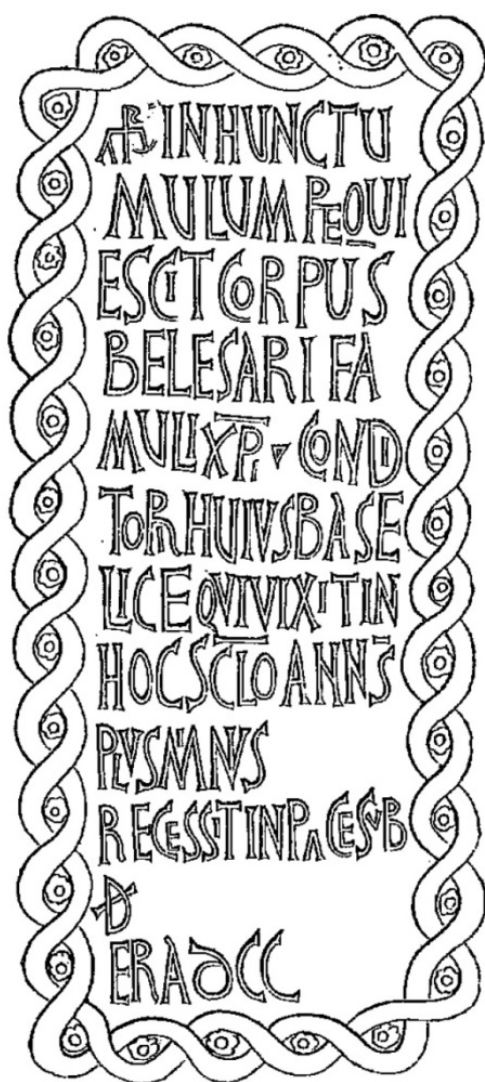 ⳩ INHUNCTU
MULUM PEQUI
ESCIT CORPUS
BELESARI FA
MULI XPI CONDI
TORHUIVSBASE
LICE QVIVIXIT IN
HOC SCLO ANNS
PLVSMINVS
RECESSIT IN PACE SVB
D
ERA DCC